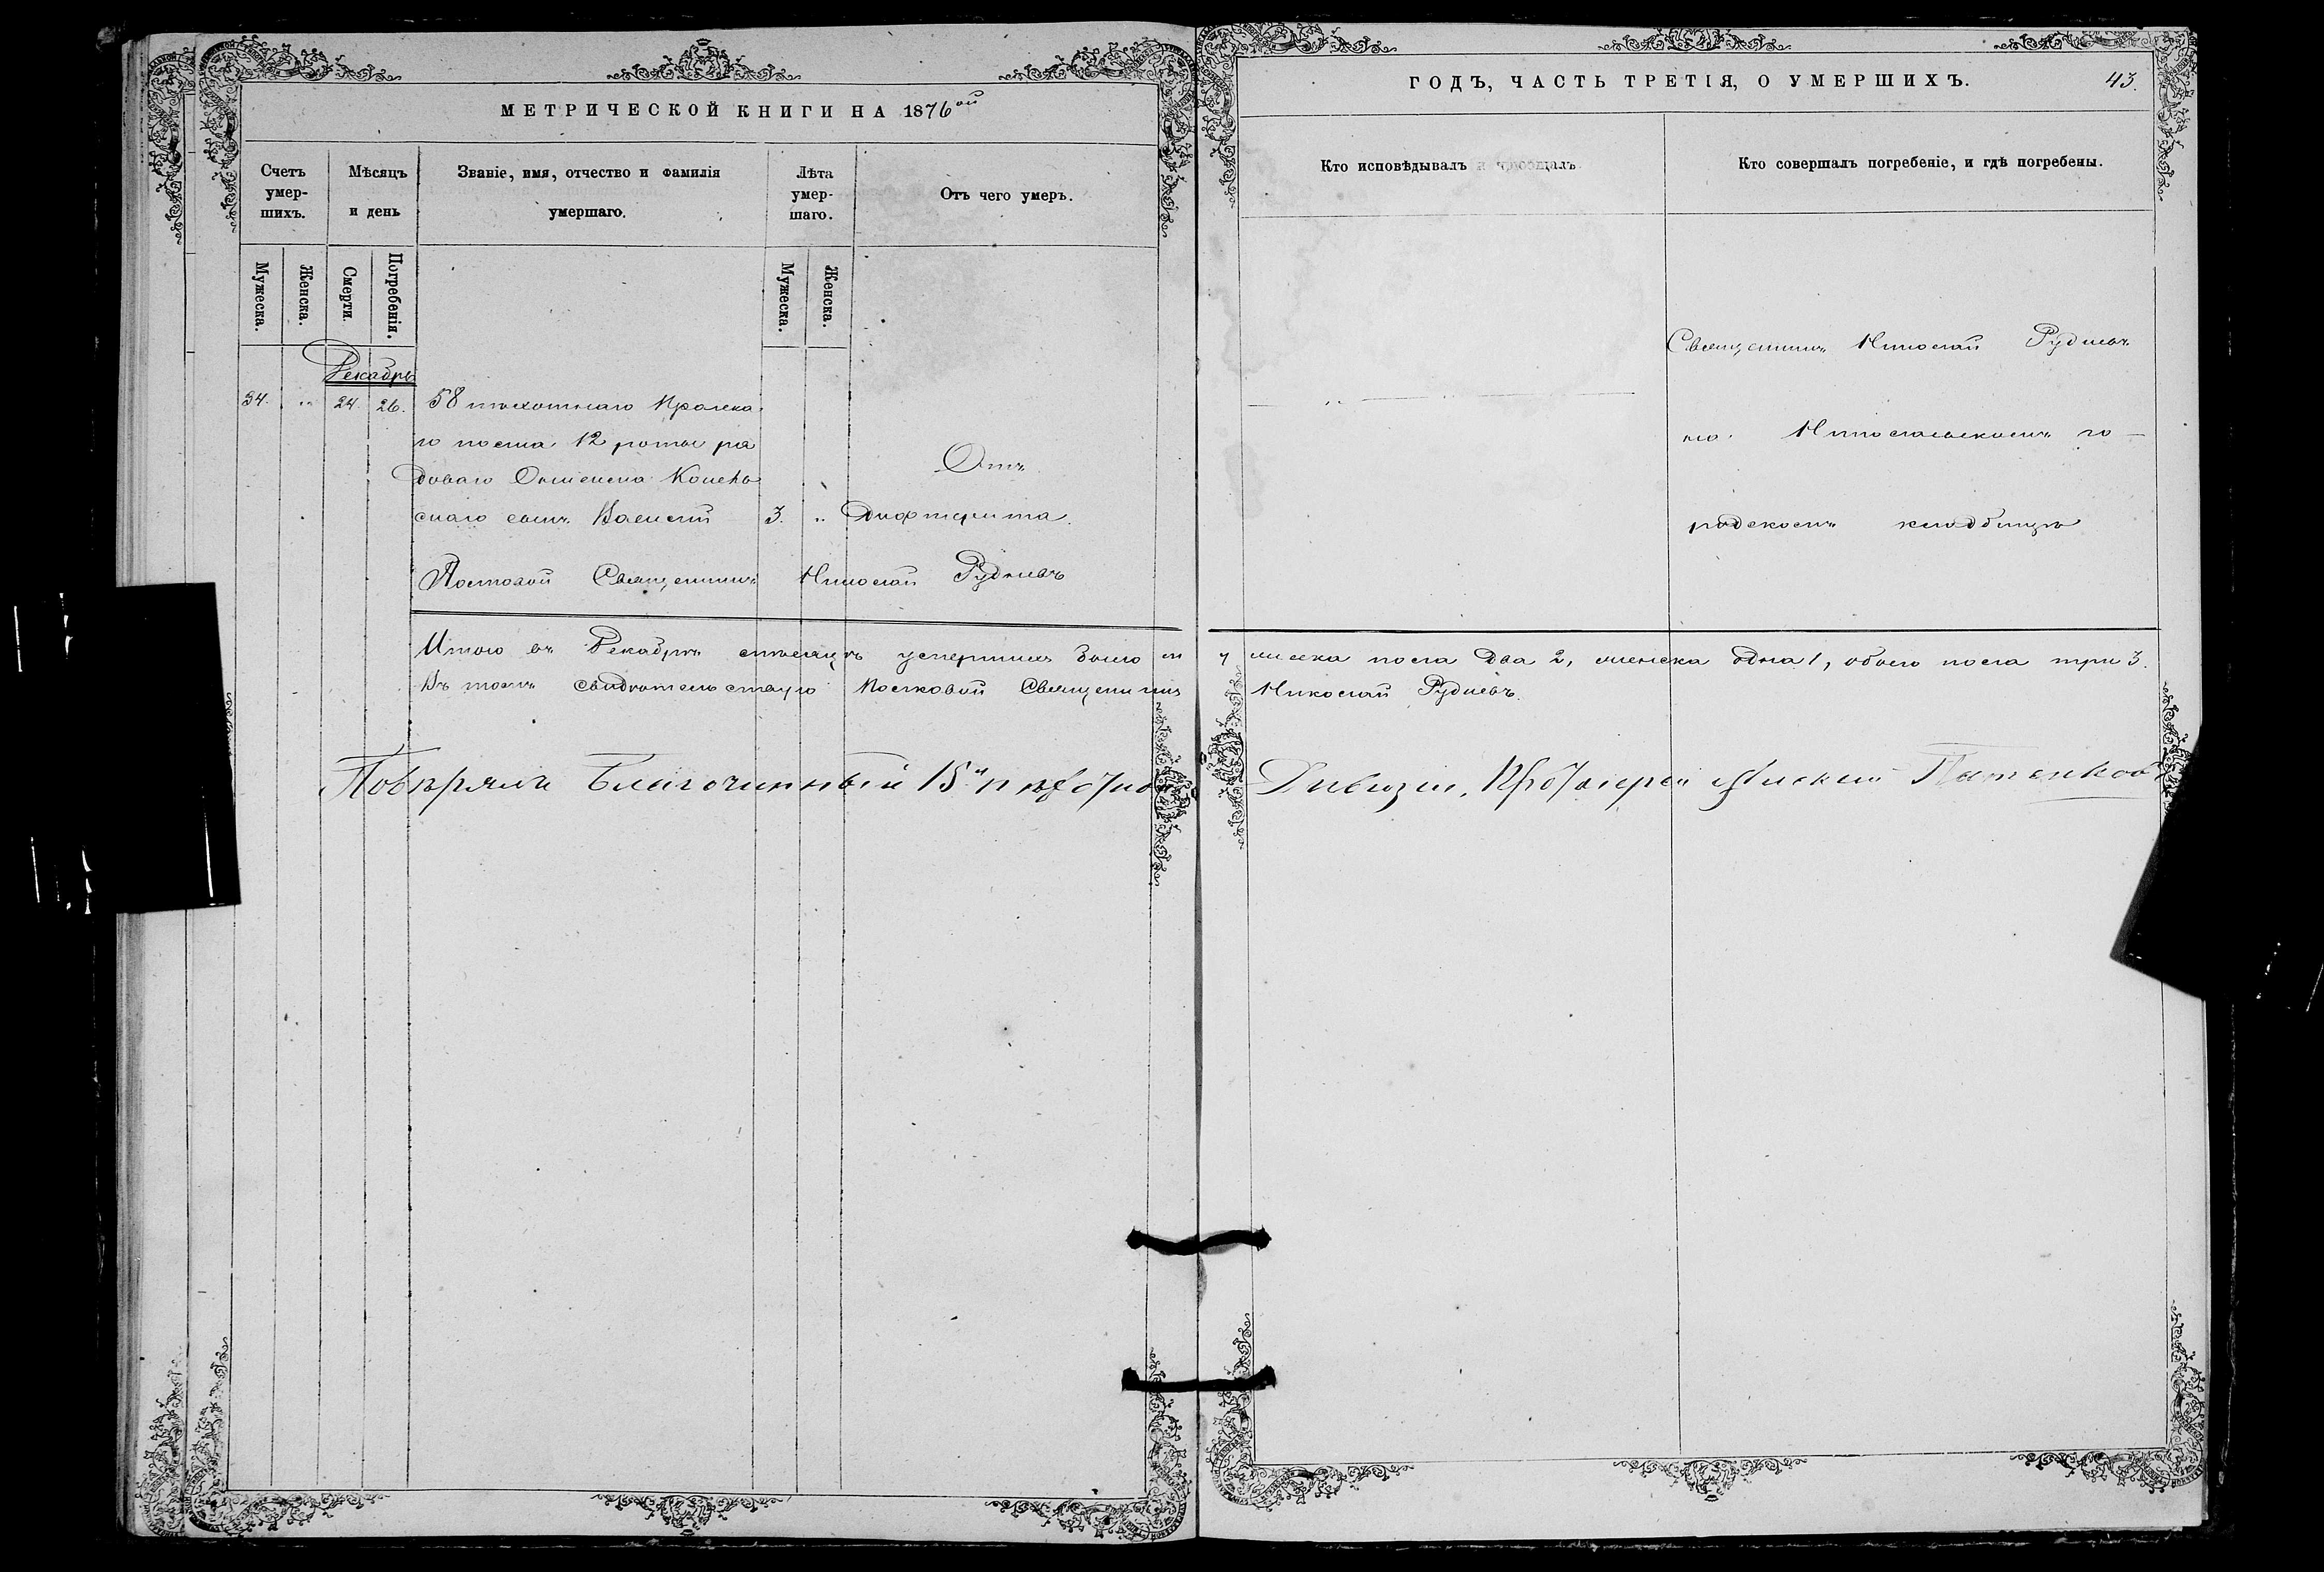 МЕТРИЧЕСКОЙ КНИГИ НА 1876ой
ГОДЪ, ЧАСТЬ ТРЕТІЯ, О УМЕРШИХЪ.
43.
Счетъ умер-шихъ.
Мѣсяцъ и день
Званіе, имя, отчество и фамилія умершаго.
Лѣта умер-шаго.
Отъ чего умеръ.
Кто исповѣдывалъ и пріобщалъ.
Кто совершалъ погребеніе, и гдѣ погребены.
Мужеска.
Женска.
Смерти.
Погребенія.
Мужеска.
Женска.
Декабрь
34. „ 24. 26.
58 пѣхотнаго Прагска
го полка 12 роты ря
доваго
снаго сынъ Василій
3. „
Отъ
дифтерита.
Священникъ Николай Рудневъ
на Николаевскомъ го-
родскомъ кладбищѣ
Полковой Священникъ Николай Рудневъ
Итого въ Декабрѣ мѣсяцѣ умершихъ было м
у жеска пола два 2, женска одна 1, обоего пола три 3.
Въ томъ свидѣтельствую Полковой Священникъ
Николай Рудневъ.
Повѣрялъ Благочинный 15й пѣхотной
Дивизіи, Протоіерей